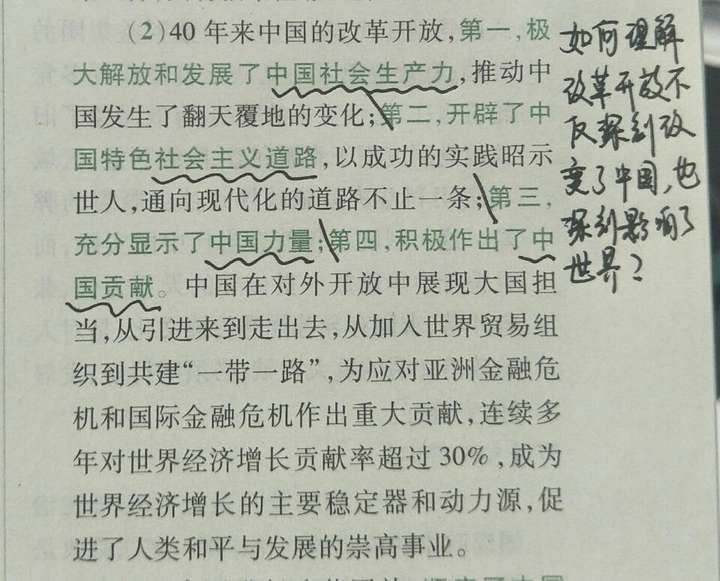 (2)40年来中国的改革开放,第一,极
大解放和发展了中国社会生产力,推动中
国发生了翻天覆地的变化;第二,开辟了中
国特色社会主义道路,以成功的实践昭示
世人,通向现代化的道路不止一条;第三,
充分显示了中国力量;第四,积极作出了中
国贡献。中国在对外开放中展现大国担
当,从引进来到走出去,从加入世界贸易组
织到共建“一带一路”,为应对亚洲金融危
机和国际金融危机作出重大贡献,连续多
年对世界经济增长贡献率超过30%,成为
世界经济增长的主要稳定器和动力源,促
进了人类和平与发展的崇高事业。
如何理解
改革开放不
仅深刻改
变了中国,也
深刻影响了
世界?